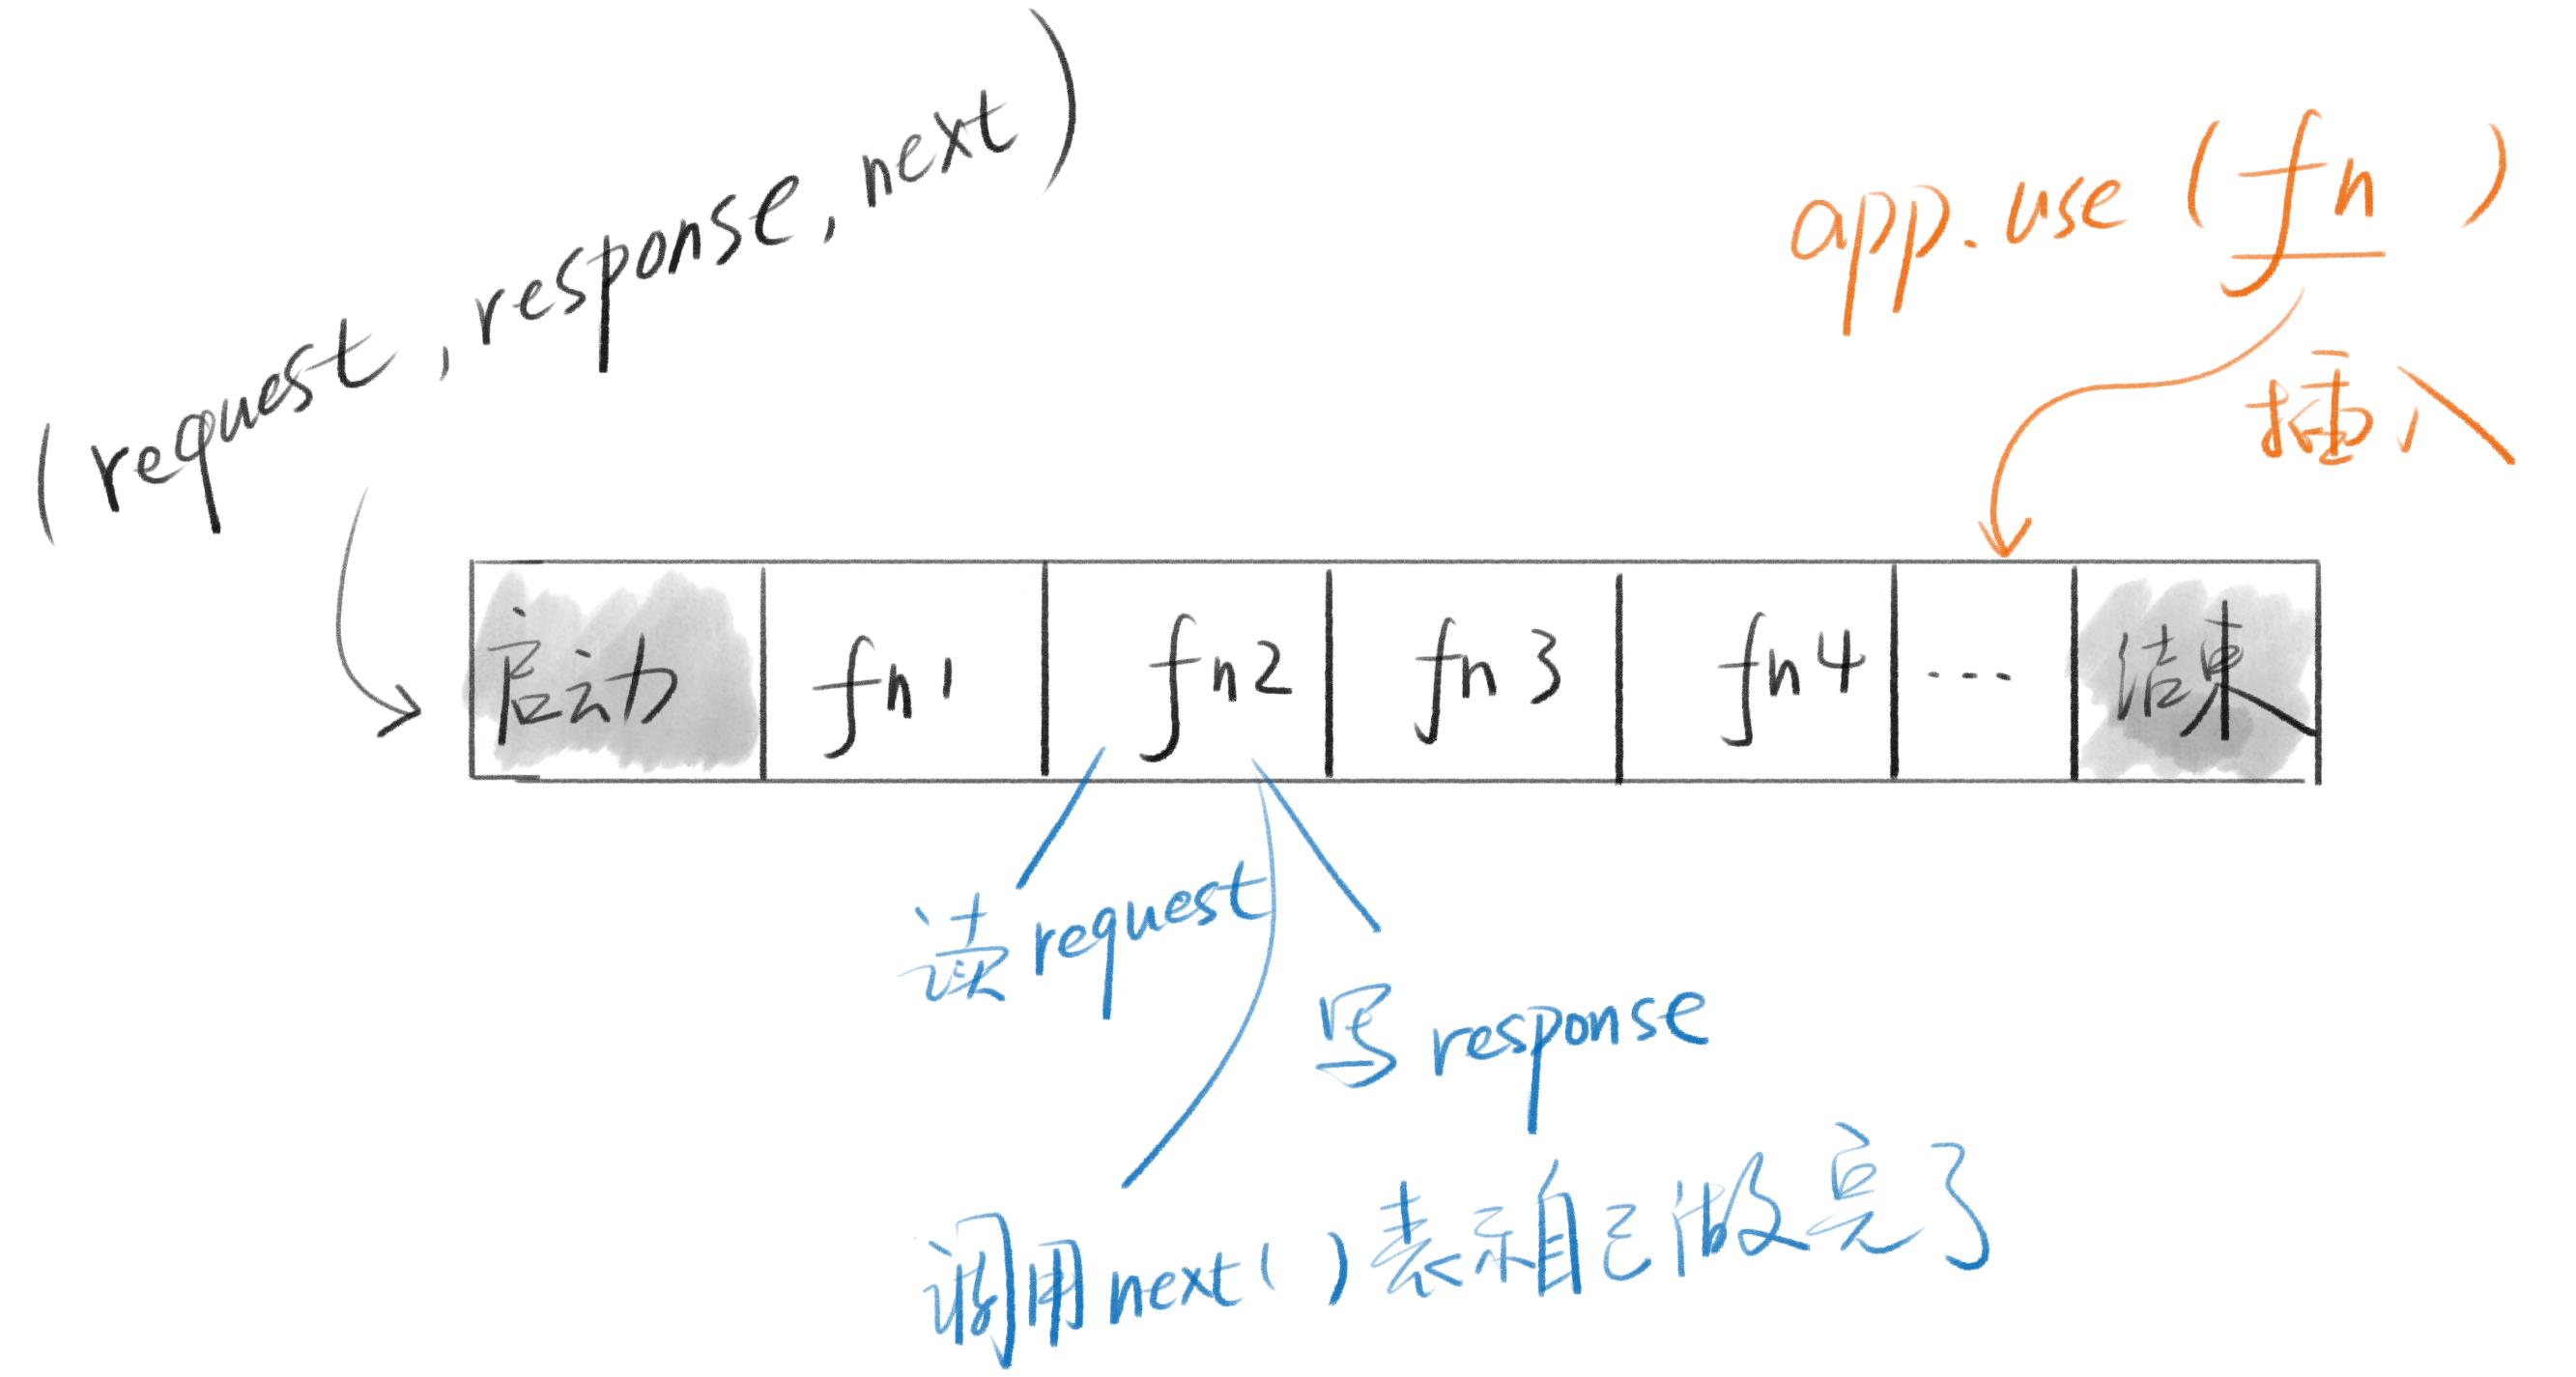 (request, response, next)
app.use(fn)
插入
启动 fn1 fn2 fn3 fn4 ... 结束
读request
写response
调用next()表示自己做完了